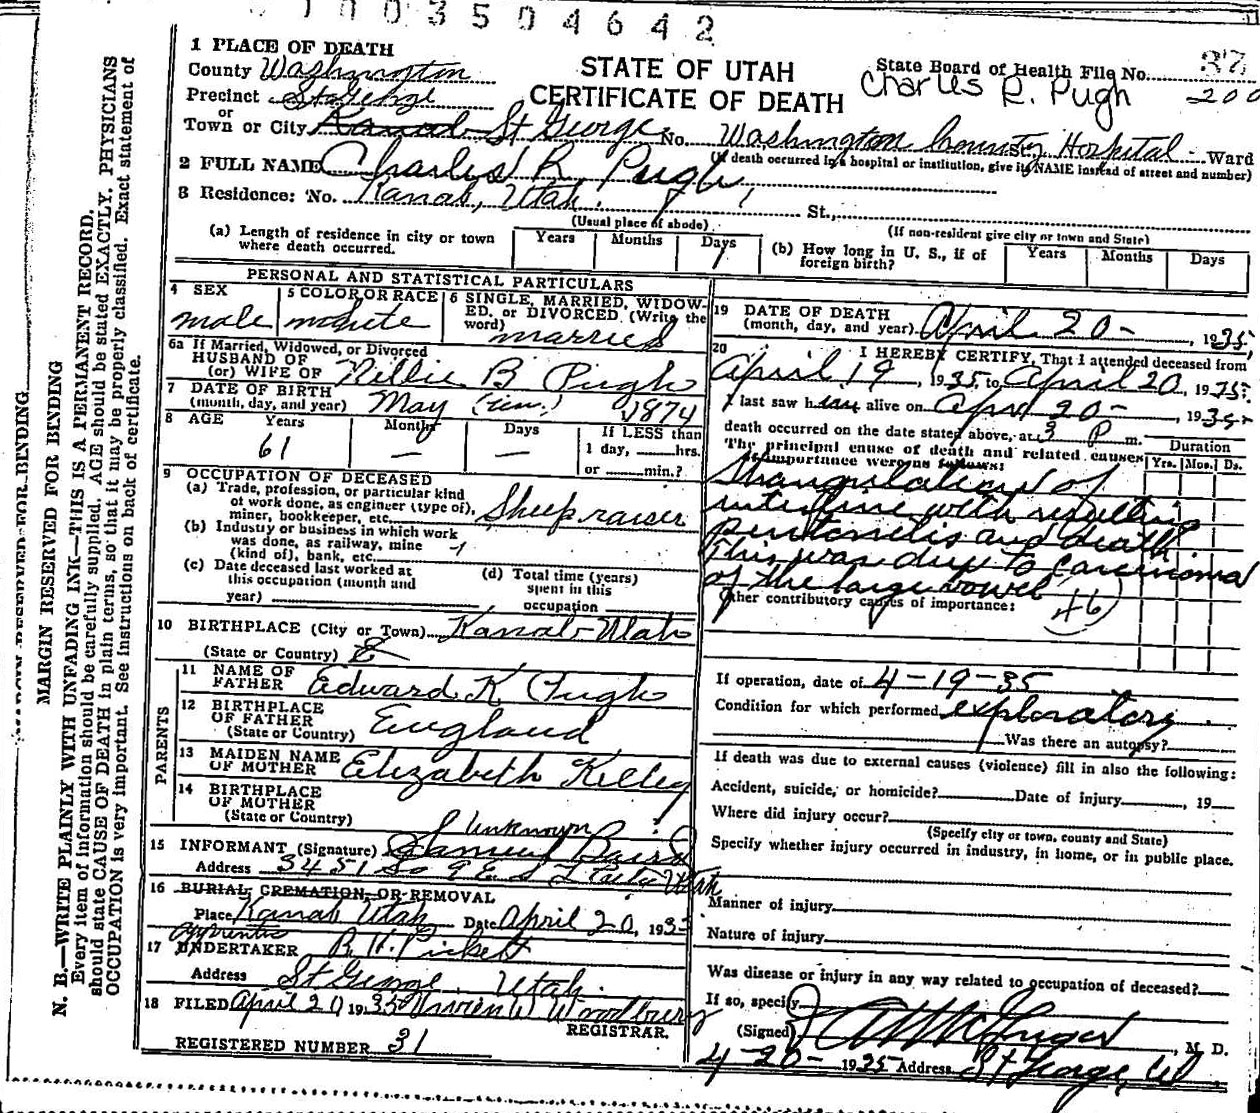 01003504642
1 PLACE OF DEATH
County Washington
Precinct St George
or
Town or City Kanab St George No. Washington County Hospital St., Ward
STATE OF UTAH
CERTIFICATE OF DEATH
State Board of Health File No. 37
200
Charles R. Pugh
(If death occurred in a hospital or institution, give its NAME instead of street and number)
2 FULL NAME Charles R. Pugh
3 Residence: No. Kanab, Utah. St.,
(Usual place of abode)
(If non-resident give city or town and State)
(a) Length of residence in city or town where death occurred. Years Months Days 1
(b) How long in U. S., if of foreign birth? Years Months Days
PERSONAL AND STATISTICAL PARTICULARS
4 SEX male
5 COLOR OR RACE white
6 SINGLE, MARRIED, WIDOWED, or DIVORCED (Write the word) married
6a If Married, Widowed, or Divorced
HUSBAND OF
(or) WIFE OF Nillie B Pugh
7 DATE OF BIRTH
(month, day, and year) May 1874
8 AGE Years 61 Months — Days — If LESS than 1 day, hrs. or min.?
9 OCCUPATION OF DECEASED
(a) Trade, profession, or particular kind of work done, as engineer (type of), miner, bookkeeper, etc. Sheep raiser
(b) Industry or business in which work was done, as railway, mine (kind of), bank, etc.
(c) Date deceased last worked at this occupation (month and year)
(d) Total time (years) spent in this occupation
10 BIRTHPLACE (City or Town) Kanab Utah
(State or Country)
PARENTS
11 NAME OF FATHER Edward K Pugh
12 BIRTHPLACE OF FATHER (State or Country) England
13 MAIDEN NAME OF MOTHER Elizabeth Kelley
14 BIRTHPLACE OF MOTHER (State or Country) Unknown
15 INFORMANT (Signature) Samuel Baird
Address 3451 So 9 E S L City Utah
16 BURIAL, CREMATION, OR REMOVAL
Place Kanab Utah Date April 20, 1935
apprentice
17 UNDERTAKER R. H. Pickett
Address St George, Utah.
18 FILED April 20 1935 Woodbury
REGISTRAR.
REGISTERED NUMBER 31
19 DATE OF DEATH
(month, day, and year) April 20 -, 1935
20 I HEREBY CERTIFY, That I attended deceased from
April 19, 1935, to April 20, 1935.
I last saw him alive on April 20 -, 1935-
death occurred on the date stated above, at 3 P m.
The principal cause of death and related causes of importance were as follows:
Duration
Yrs. Mos. Ds.
Strangulation of
intestine with resulting
peritonitis and death.
This was due to carcinoma
of the large bowel
46
Other contributory causes of importance:
If operation, date of 4-19-35
Condition for which performed exploratory.
Was there an autopsy?
If death was due to external causes (violence) fill in also the following:
Accident, suicide, or homicide? Date of injury, 19
Where did injury occur?
(Specify city or town, county and State)
Specify whether injury occurred in industry, in home, or in public place.
Manner of injury
Nature of injury
Was disease or injury in any way related to occupation of deceased?
If so, specify
(Signed) M. D.
4-20- 1935 Address St George, Ut
MARGIN RESERVED FOR BINDING
MARGIN RESERVED FOR BINDING
N. B.—WRITE PLAINLY WITH UNFADING INK—THIS IS A PERMANENT RECORD.
Every item of information should be carefully supplied. AGE should be stated EXACTLY. PHYSICIANS
should state CAUSE OF DEATH in plain terms, so that it may be properly classified. Exact statement of
OCCUPATION is very important. See instructions on back of certificate.